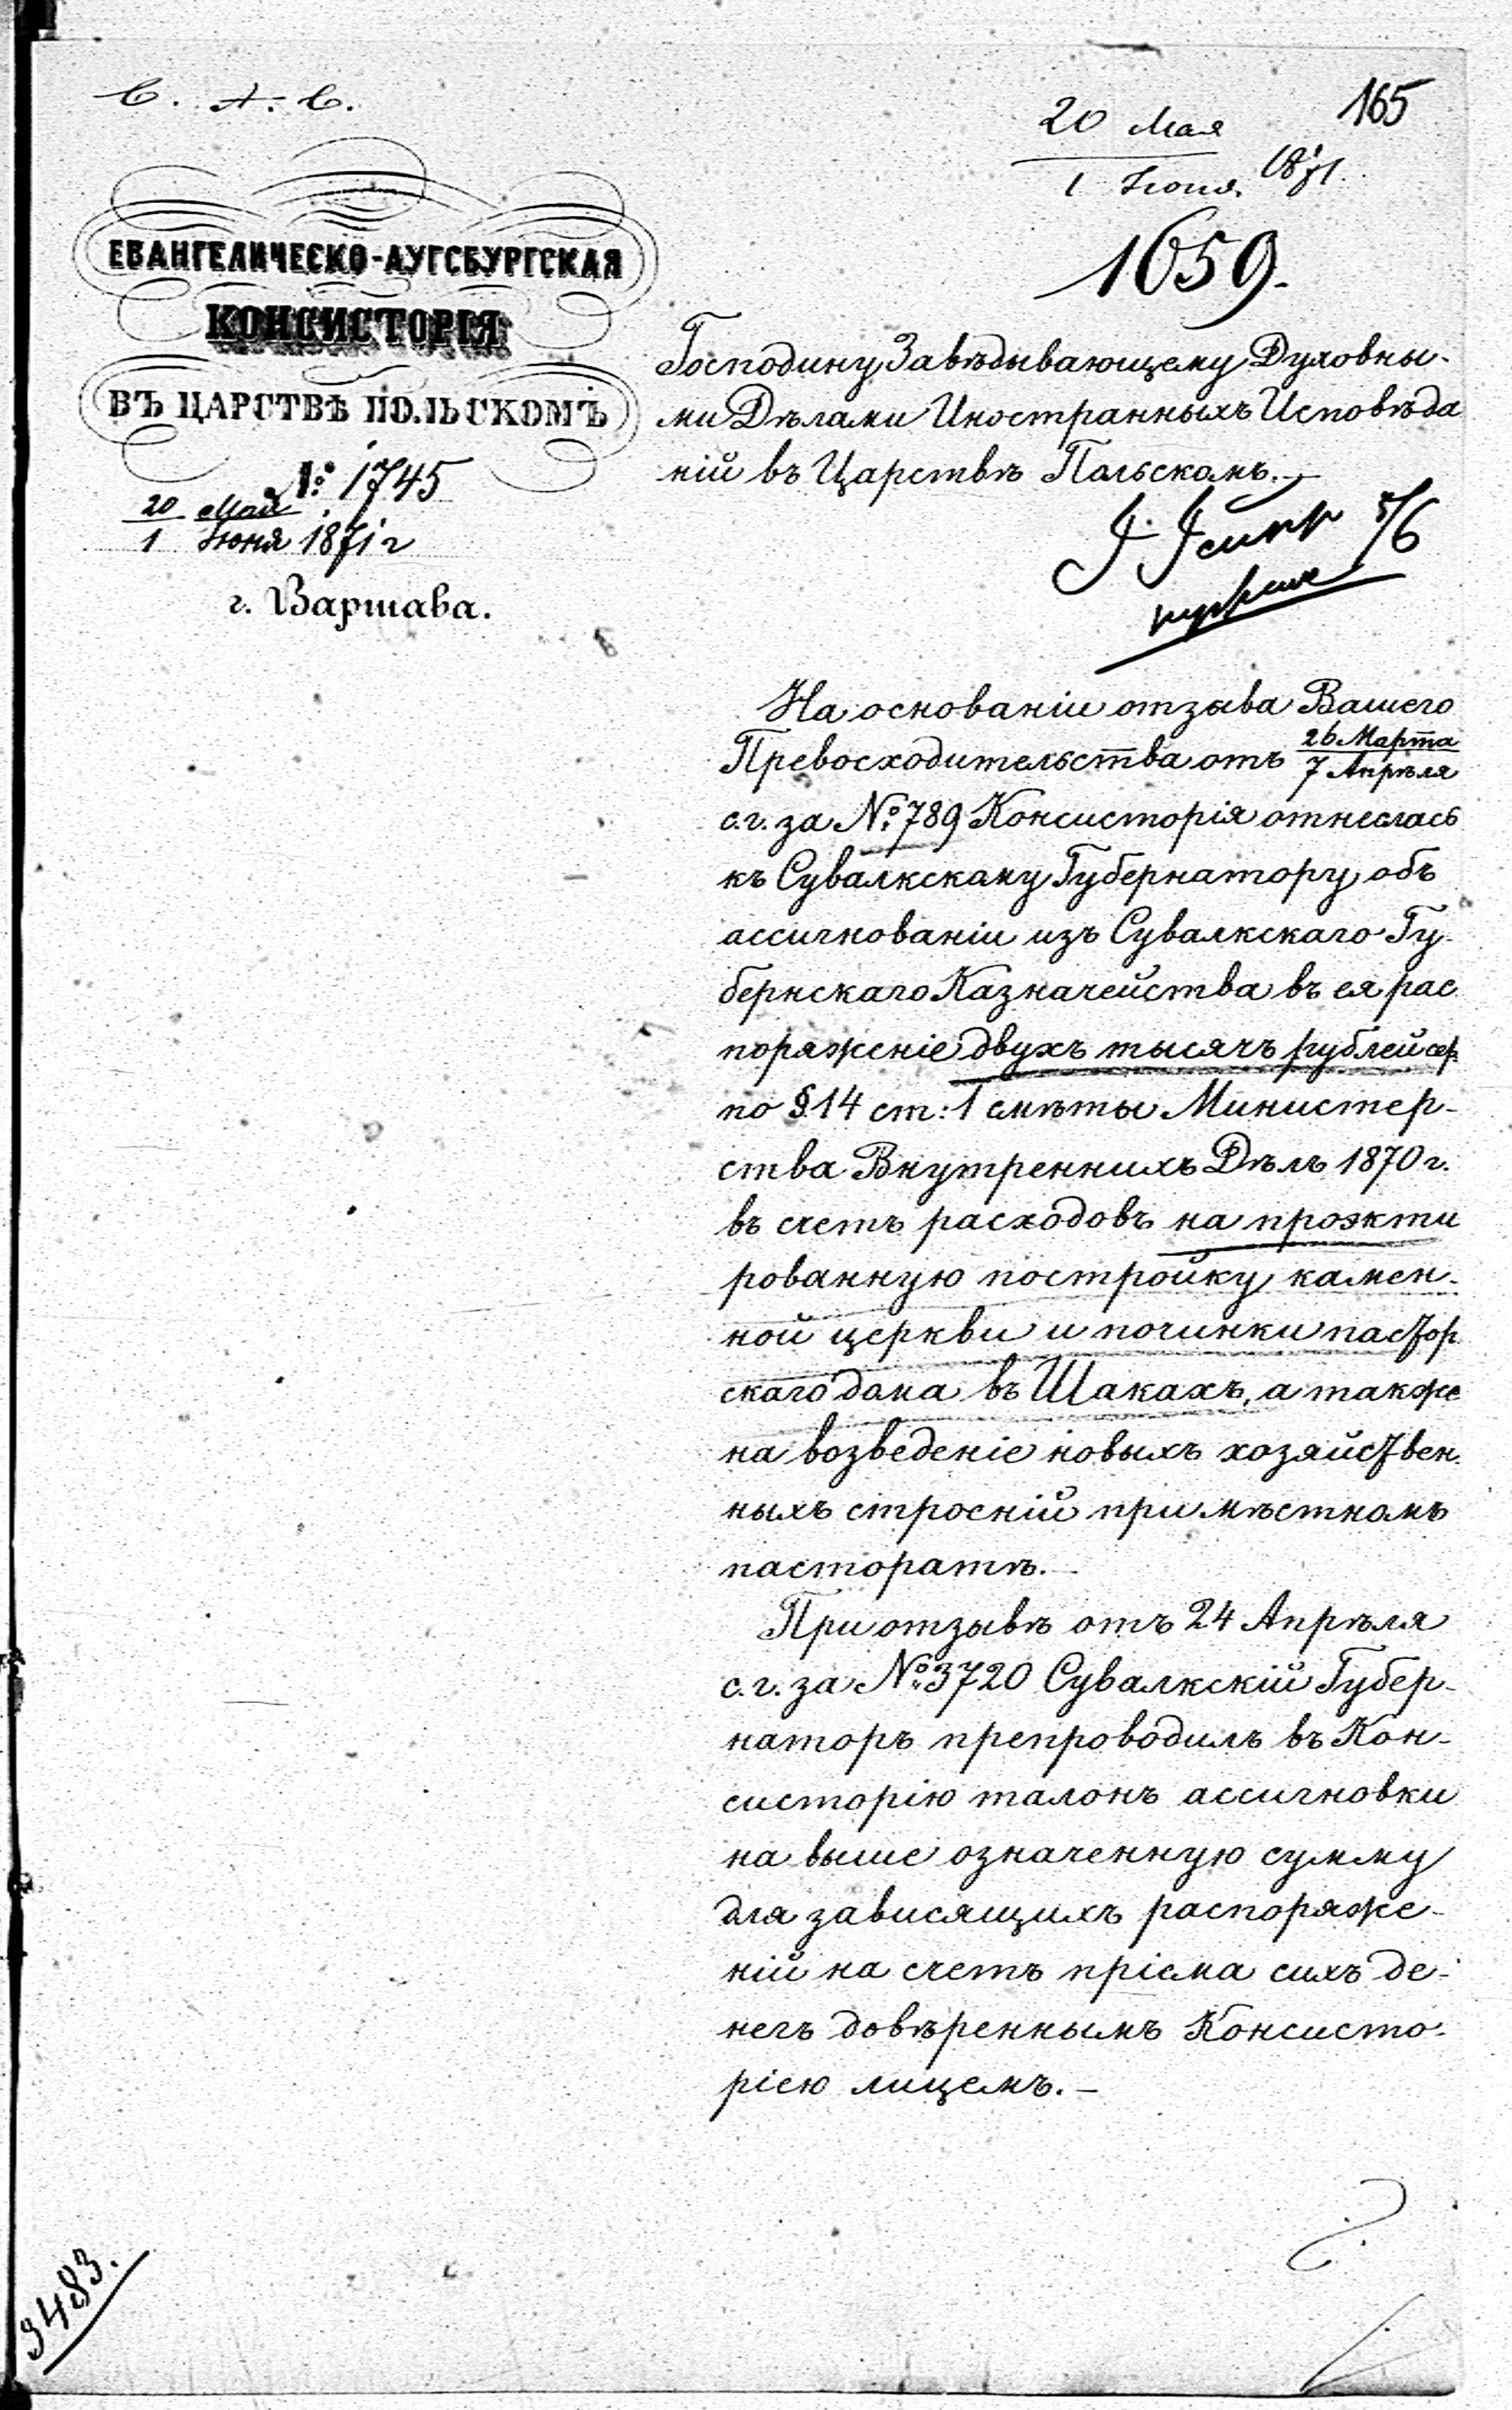 С. А. С.
165
20 Мая
1 Іюня 1871.
1659.
ЕВАНГЕЛИЧЕСКО-АУГСБУРГСКАЯ
КОНСИСТОРІЯ
ВЪ ЦАРСТВѢ ПОЛЬСКОМЪ
№ 1745
20 Мая
1 Іюня 1871 г
г. Варшава.
Господину Завѣдывающему Духовны-
ми Дѣлами Иностранныхъ Исповѣда
ній въ Царствѣ Польскомъ.—
5/6
На основаніи отзыва Вашего
Превосходительства отъ 26 Марта
7 Апрѣля
с.г. за № 789 Консисторія отнеслась
къ Сувалкскому Губернатору объ
ассигнованіи изъ Сувалкскаго Гу-
бернскаго Казначейства въ ея рас
поряженіе двухъ тысячъ рублей сер.
по § 14 ст: 1 смѣты Министер-
ства Внутреннихъ Дѣлъ 1870 г.
въ счетъ расходовъ на проэкти
рованную постройку камен-
ной церкви и починки пастор
скаго дома въ Шакахъ, а также
на возведеніе новыхъ хозяйствен
ныхъ строеній при мѣстномъ
пасторатѣ.—
При отзывѣ отъ 24 Апрѣля
с.г. за № 3720 Сувалкскій Губер-
наторъ препроводилъ въ Кон-
систорію талонъ ассигновки
на выше означенную сумму
для зависящихъ распоряже-
ній на счетъ пріема сихъ де-
негъ довѣреннымъ Консисто-
ріею лицемъ.—
3483.